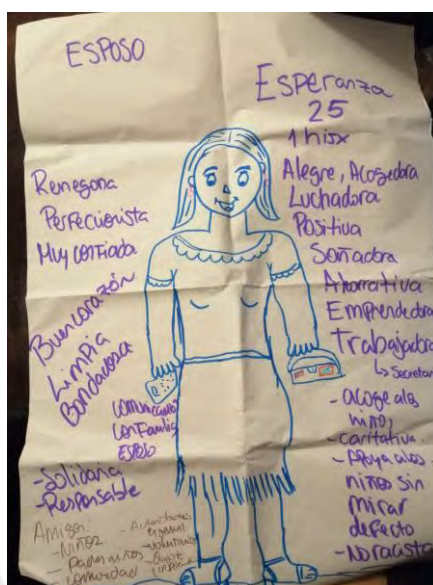 ESPOSO
Esperanza
25
1 hijx
Alegre, Acogedora
Luchadora
Positiva
Soñadora
Ahorrativa
Emprendedora
Trabajadora
↳ Secretar
- acoge a los
niños,
- caritativa.
- Apoya a los
niños sin
mirar
defecto
- No racista
Renegona
Perfecionista
Muy confiada
Buen corazón
Limpia
Bondadosa
comunicación
con familia
ESPOSO
- Solidaria
- Responsable
Amigos:
- Niños
- Padres niños
- comunidad
- voluntarios